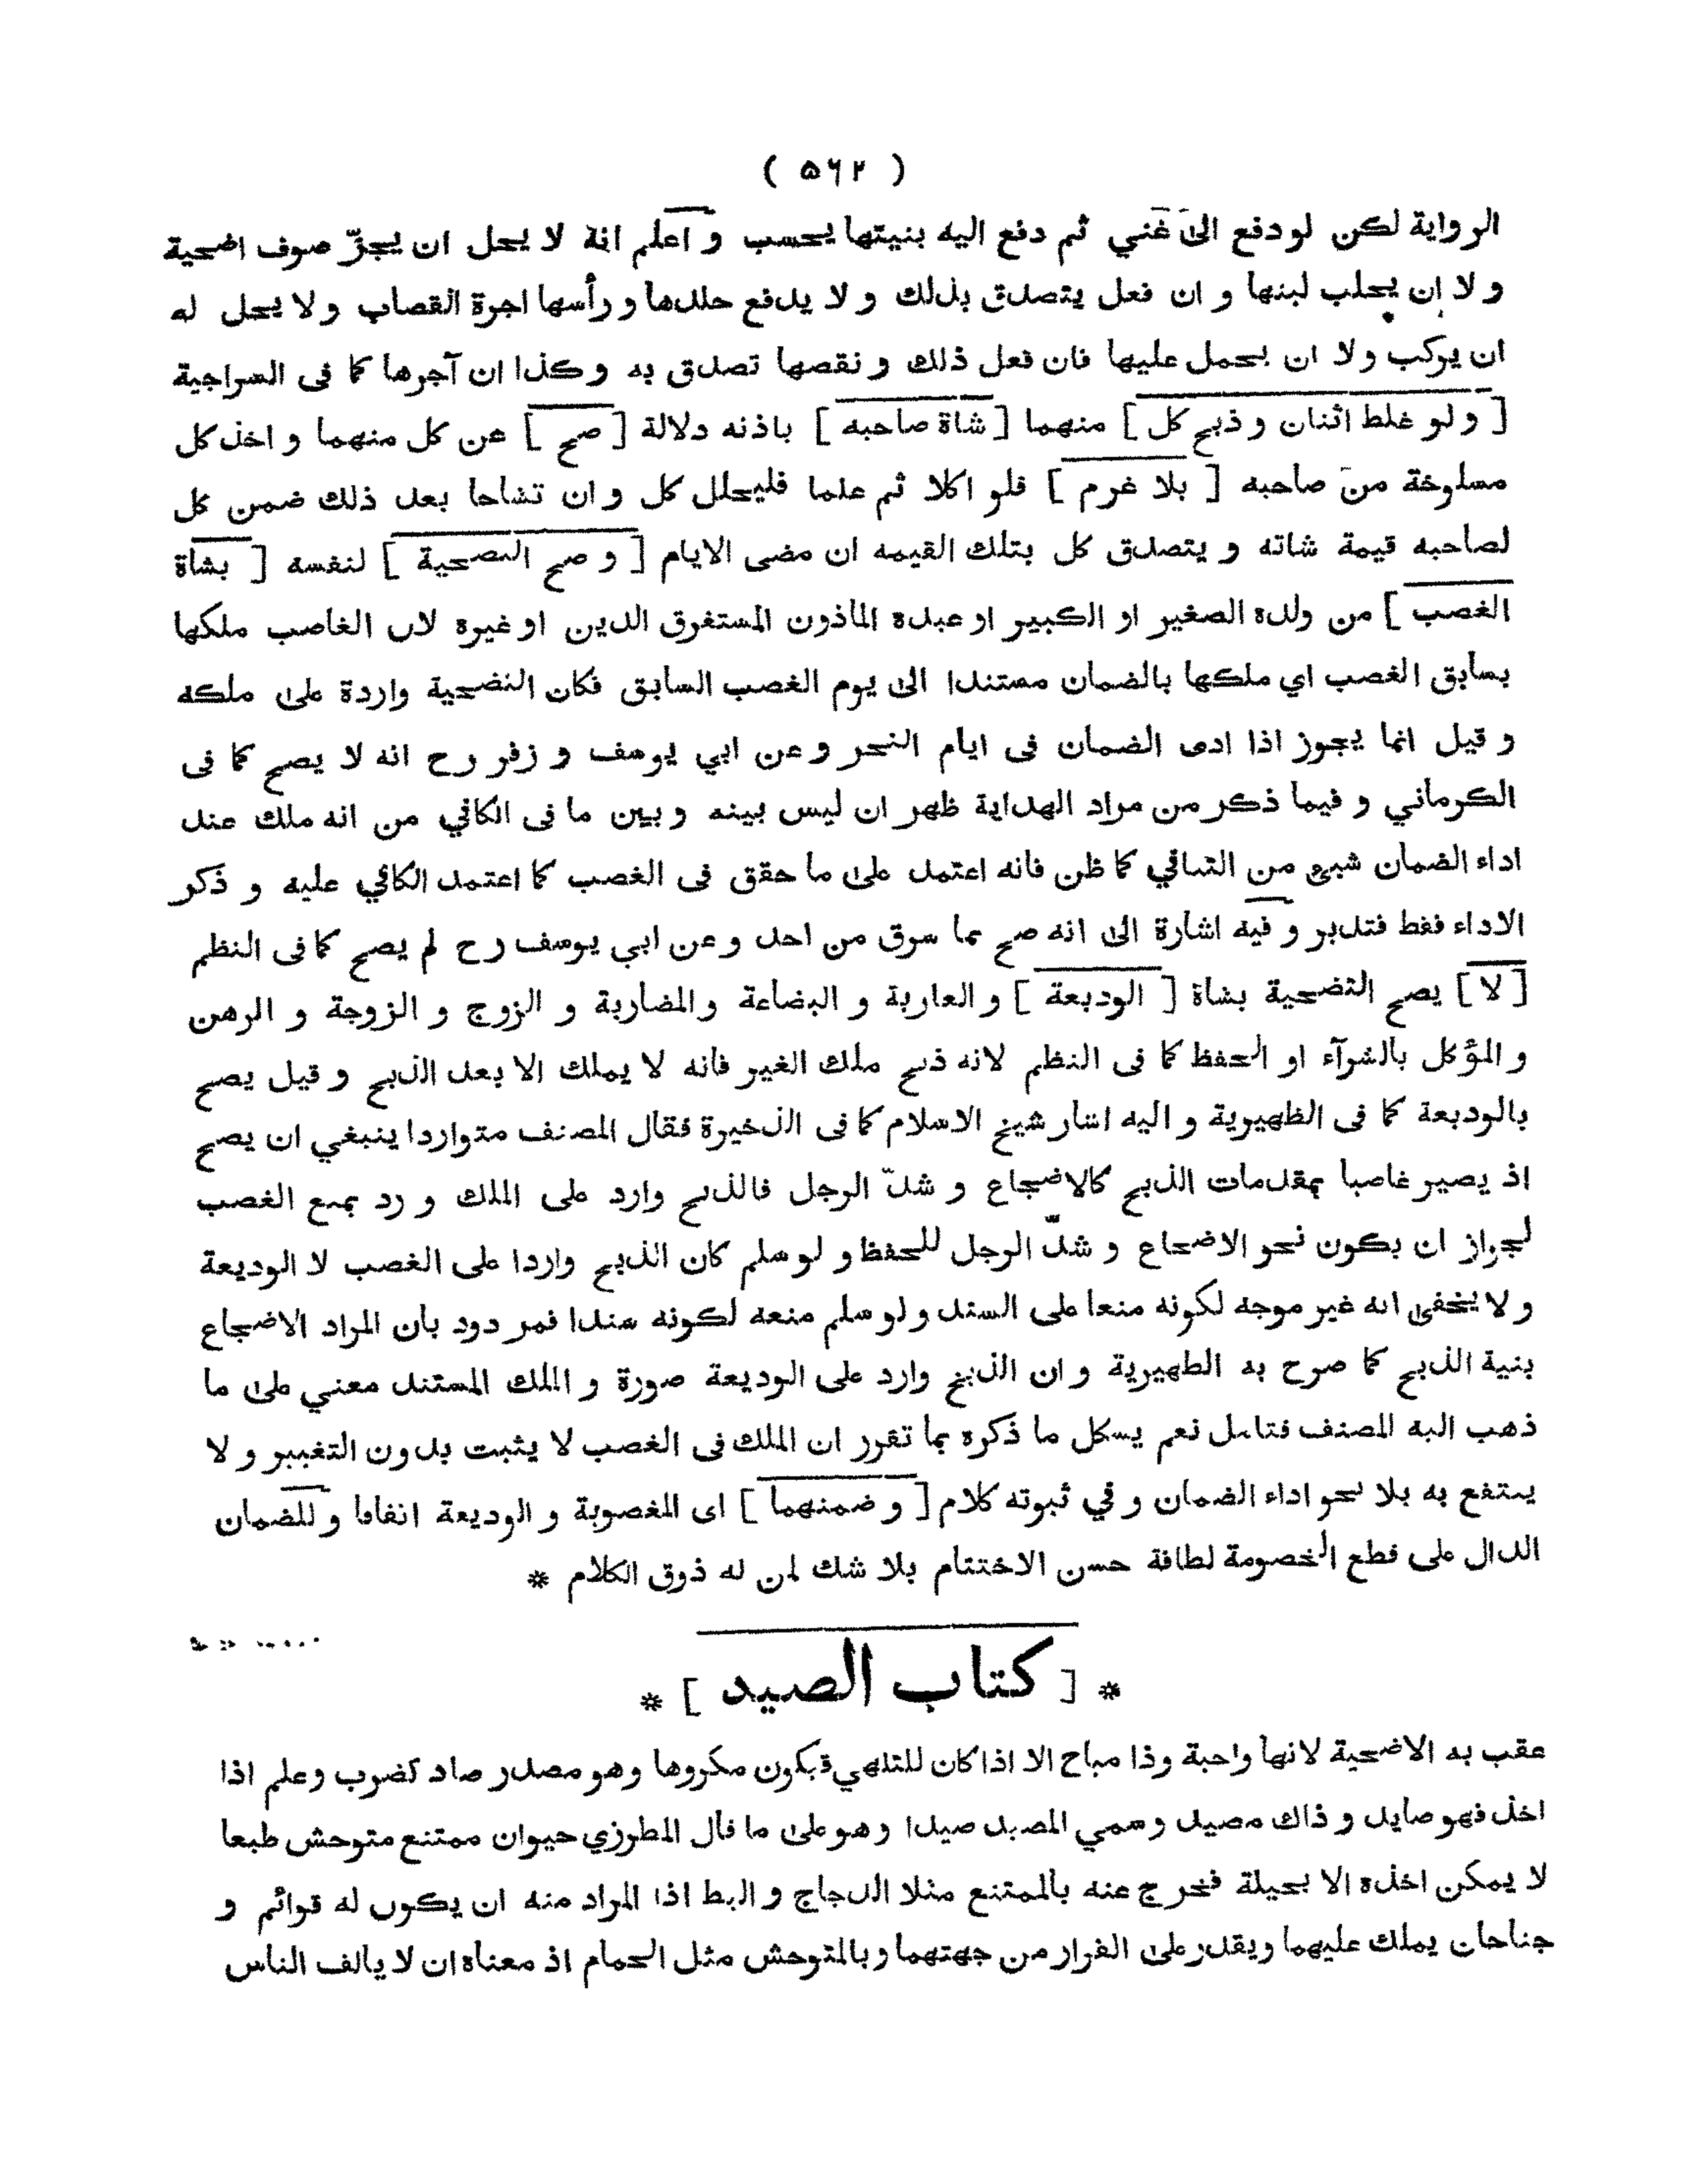 ( ۵۶۲ )
الرواية لكن لو دفع الى غني ثم دفع اليه بنيتها يحسب و اعلم انه لا يحل ان يجزّ صوف اضحية
و لا ان يحلب لبنها و ان فعل يتصدق بذلك و لا يدفع جلدها و رأسها اجرة القصاب و لا يحل له
ان يركب ولا ان يحمل عليها فان فعل ذلك و نقصها تصدق به وكذا ان آجرها كما فى السراجية
[ و لو غلط اثنان و ذبح كل ] منهما [ شاة صاحبه ] باذنه دلالة [ صح ] عن كل منهما و اخذ كل
مسلوخة من صاحبه [ بلا غرم ] فلو اكلا ثم علما فليحلل كل و ان تشاحا بعد ذلك ضمن كل
لصاحبه قيمة شاته و يتصدق كل بتلك القيمه ان مضى الايام [ و صح التضحية ] لنفسه [ بشاة
الغصب ] من ولده الصغير او الكبير او عبده الماذون المستغرق الدين او غيره لان الغاصب ملكها
بسابق الغصب اي ملكها بالضمان مستندا الى يوم الغصب السابق فكان التضحية واردة على ملكه
و قيل انما يجوز اذا ادى الضمان فى ايام النحر وعن ابي يوسف و زفر رح انه لا يصح كما فى
الكرماني و فيما ذكر من مراد الهداية ظهر ان ليس بينه و بين ما فى الكافي من انه ملك عند
اداء الضمان شيئ من التناقي كما ظن فانه اعتمد على ما حقق فى الغصب كما اعتمد الكافي عليه و ذكر
الاداء فقط فتدبر و فيه اشارة الى انه صح بما سرق من احد و عن ابي يوسف رح لم يصح كما فى النظم
[ لا ] يصح التضحية بشاة [ الوديعة ] و العارية و البضاعة والمضاربة و الزوج و الزوجة و الرهن
و المؤكل بالشرآء او الحفظ كما فى النظم لانه ذبح ملك الغير فانه لا يملك الا بعد الذبح و قيل يصح
بالوديعة كما فى الظهيرية و اليه اشار شيخ الاسلام كما فى الذخيرة فقال المصنف متواردا ينبغي ان يصح
اذ يصير غاصبا بمقدمات الذبح كالاضجاع و شدّ الرجل فالذبح وارد على الملك و رد بمنع الغصب
لجواز ان يكون نحو الاضجاع و شدّ الرجل للحفظ و لو سلم كان الذبح واردا على الغصب لا الوديعة
و لا يخفى انه غير موجه لكونه منعا على السند و لو سلم منعه لكونه سندا فمردود بأن المراد الاضجاع
بنية الذبح كما صرح به الظهيرية و ان الذبح وارد على الوديعة صورة و الملك المستند معني على ما
ذهب اليه المصنف فتامل نعم يشكل ما ذكره بما تقرر ان الملك فى الغصب لا يثبت بدون التغيير و لا
ينتفع به بلا نحو اداء الضمان و في ثبوته كلام [ و ضمنهما ] اى المغصوبة و الوديعة اتفاقا و للضمان
الدال على قطع الخصومة لطافة حسن الاختتام بلا شك لمن له ذوق الكلام *
* [ كتاب الصيد ] *
عقب به الاضحية لانها واجبة وذا مباح الا اذا كان للتلهي فيكون مكروها وهو مصدر صاد كضرب وعلم اذا
اخذ فهو صايد و ذاك مصيد وسمي المصيد صيدا وهو على ما قال المطرزي حيوان ممتنع متوحش طبعا
لا يمكن اخذه الا بحيلة فخرج عنه بالممتنع مثلا الدجاج و البط اذا المراد منه ان يكون له قوائم و
جناحان يملك عليهما ويقدر على الفرار من جهتهما وبالمتوحش مثل الحمام اذ معناه ان لا يالف الناس